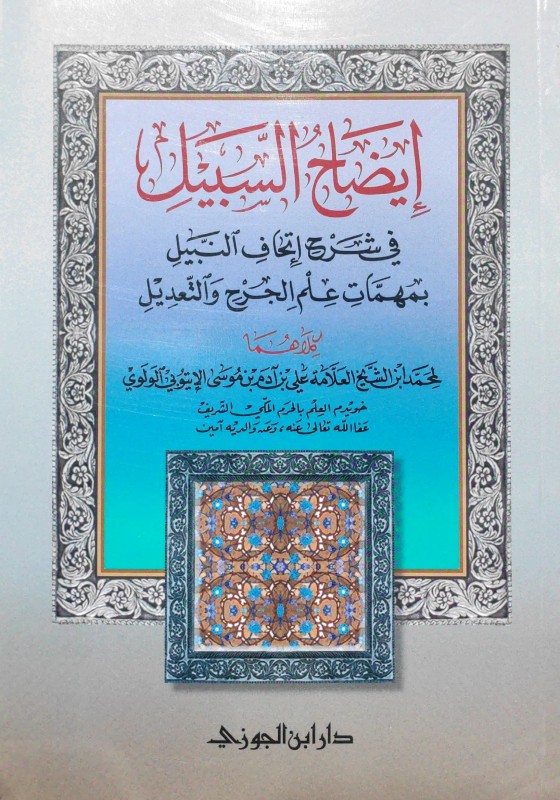 إِيضَاحُ السَّبِيلِ
في شَرْحِ إِتْحَافِ النَّبِيلِ
بِمُهِمَّاتِ عِلْمِ الجَرْحِ وَالتَّعْدِيلِ
كِلَاهُمَا
لِمحمّد ابْنِ الشَّيْخِ العَلَّامَة عَلي بْنِ آدَم بْن مُوسَى الإِتيُوبِي الوَلَّوِي
خويدم العِلْم بِالحَرَم المَكّي الشّريف
عَفَا اللّه تعَالى عنه، وَعَن وَالديه آمين
دار ابن الجوزي